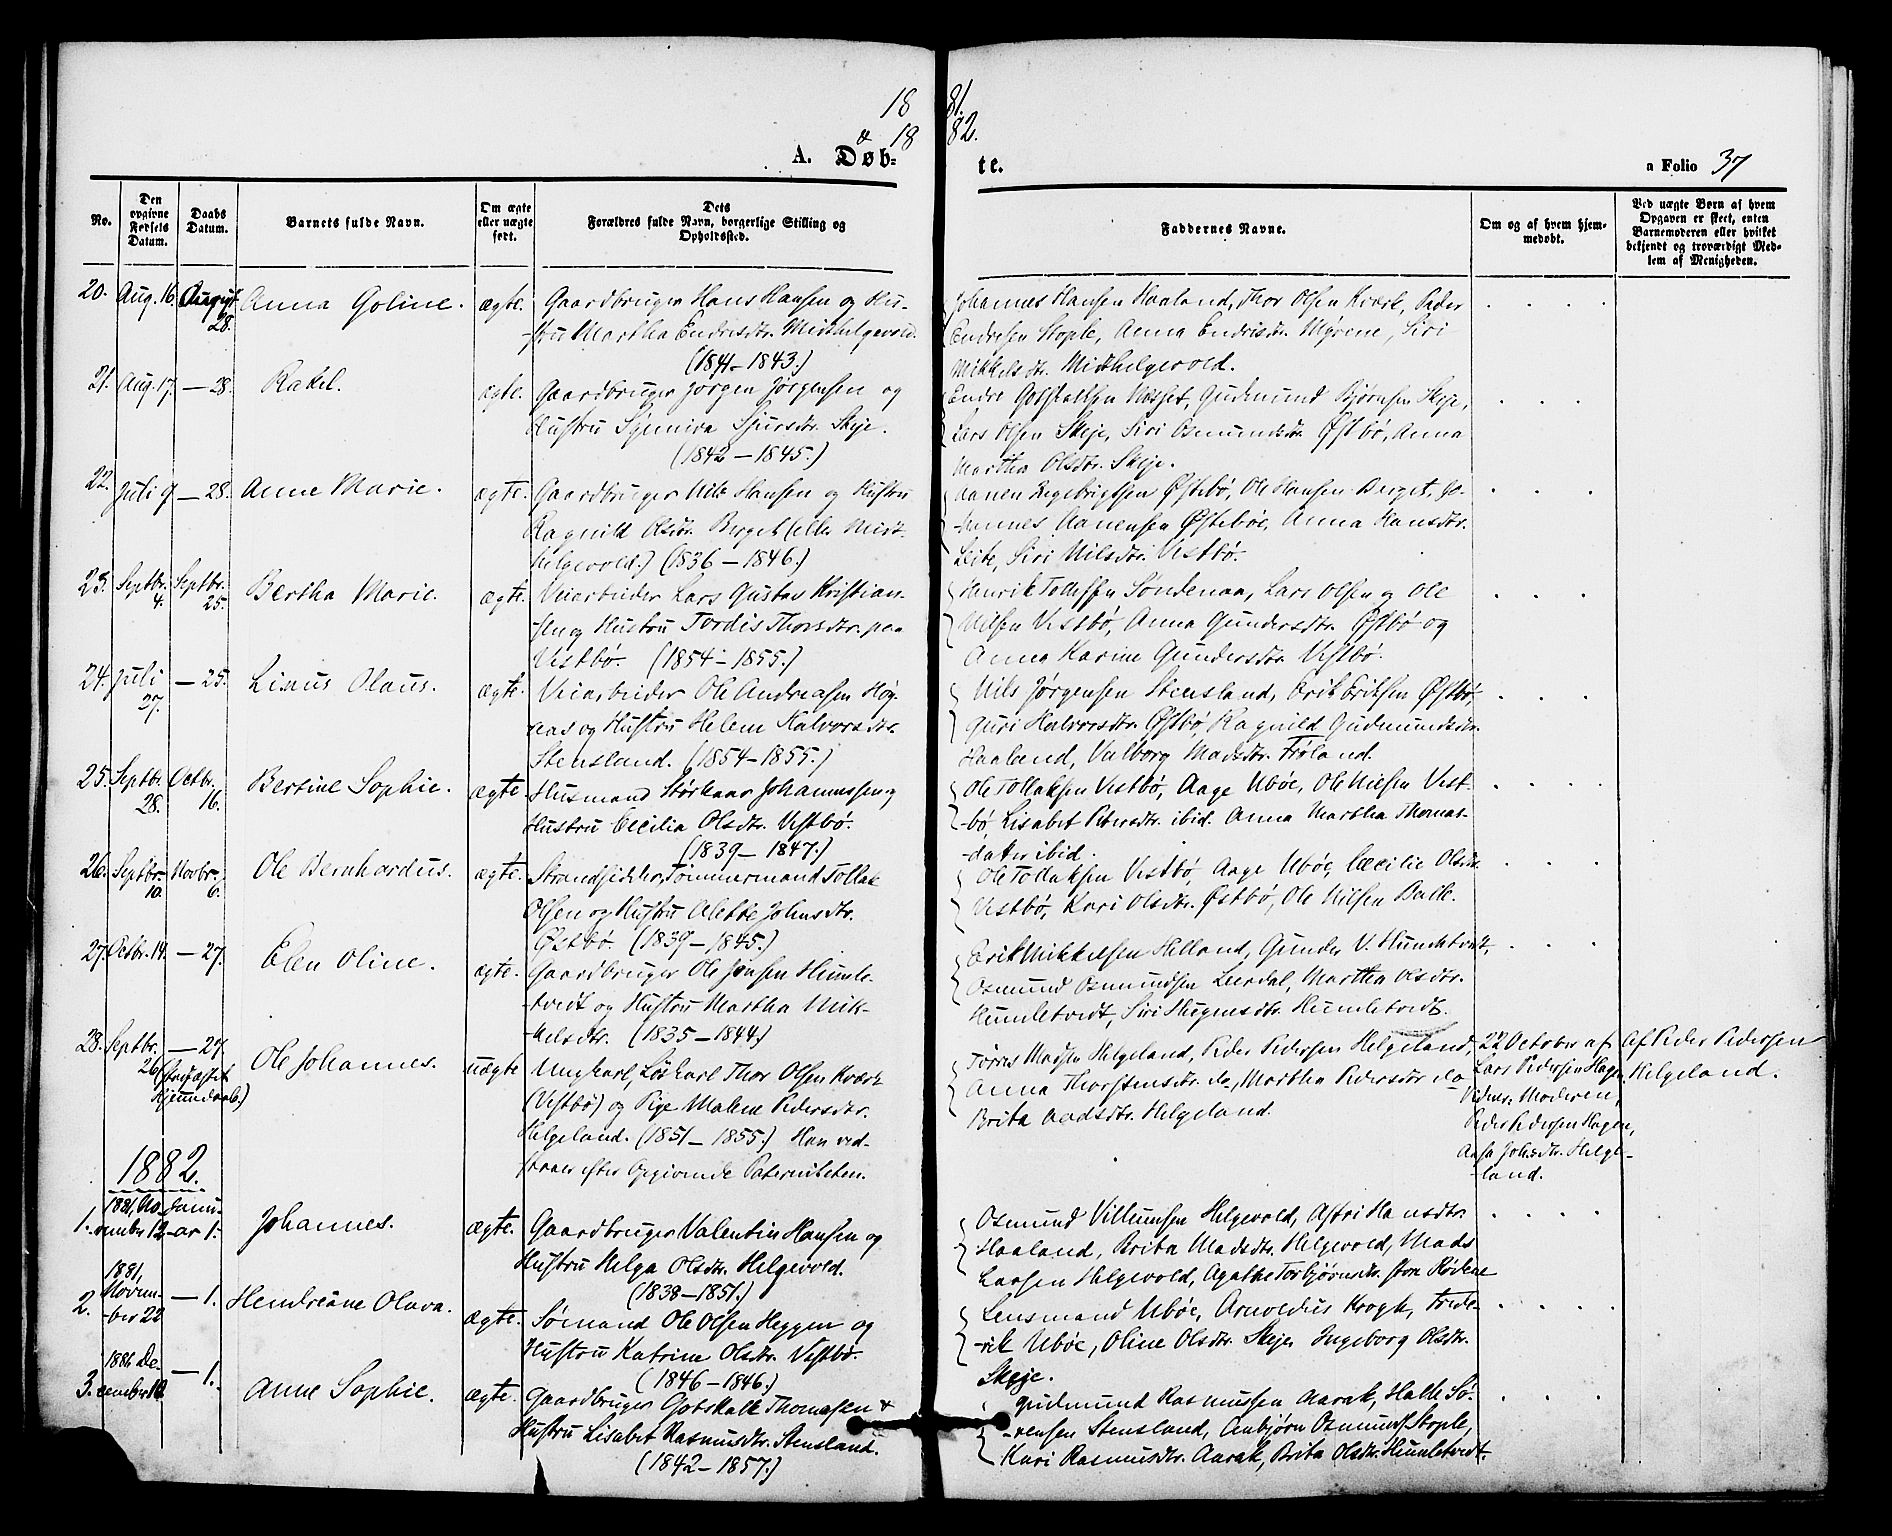 18 81.
& 18 82.
A. Døb- te.
a Folio 37
No.
Den opgivne Fødsels Datum.
Daabs Datum.
Barnets fulde Navn.
Om ægte eller uægte født.
Dets Forældres fulde Navn, borgerlige Stilling og Opholdssted.
Faddernes Navne.
Om og af hvem hjemmedøbt.
Ved uægte Børn af hvem Opgaven er skeet, enten Barnemoderen eller hvilket bekjendt og troværdigt Medlem af Menigheden.
20. Aug. 16. August 28. Anna Goline. ægte.
Gaardbruger Hans Hansen og Hu-
stru Martha Endresdtr. Midthelgevold.
(1841-1843.)
Johannes Hansen Haaland, Thor Olsen Kværk, Peder
Endresen Stople, Anna Endrisdtr. Myrene, Siri
Mikkelsdtr. Midthelgevold.
21. Aug. 17. — 28. Rakel. ægte.
Gaardbruger Jørgen Jørgensen og
Hustru Synniva Sjursdtr. Skeje.
(1842 — 1845.)
Endre Gotskalksen Næsset, Gudmund Bjørnsen Skeje,
Lars Olsen Skeje, Siri Osmundsdtr. Østbø, Anna
Martha Olsdtr. Skeje.
22. Juli 9 — 28. Anne Marie. ægte.
Gaardbruger Nils Hansen og Hustru
Ragnild Olsdtr. Berget (eller Midt-
helgevold.) (1836 — 1846.)
Aanen Ingebrigtsen Østebø, Ole Hansen Berget, Jo-
hannes Aanensen Østebøe, Anna Hansdtr.
Leite, Siri Nilsdtr. Vestbø.
23. Septbr. 4. Septbr. 25. Bertha Marie. ægte.
Veiarbeider Lars Gustav Kristian-
sen og Hustru Tordis Thorsdtr. paa
Vestbø. (1854 — 1855.)
Henrik Tollefsen Søndenaa, Lars Olsen og Ole
Nilsen Vestbø, Anna Gundersdtr. Østbø og
Anna Karine Gundersdtr. Vestbø.
24. Juli 27. — 25. Linus Olaus. ægte.
Veiarbeider Ole Andreasen Høg-
aas og Hustru Helene Halvorsdtr.
Stensland. (1854-1855.)
Nils Jørgensen Stensland, Erik Eriksen Østbø,
Guri Halvorsdtr. Østbø, Ragnild Gudmundsdtr.
Haaland, Valborg Madsdtr. Frøland.
25. Septbr. 28. Octbr. 16. Bertine Sophie. ægte.
Husmand Størkaar Johannessen og
Hustru Cecilia Olsdtr. Vestbø.
(1839 — 1847.)
Ole Tollaksen Vestbø, Aage Ubøe, Ole Nielsen Vest-
-bø, Lisabet Petersdtr. ibid. Anna Martha Thomas-
-datter ibid.
26. Septbr. 10. Novbr. 6. Ole Bernhardus. ægte.
Strandsidder, Tømmermand Tollak
Olsen og Hustru Alette Johnsdtr.
Østbø. (1839-1845.)
Ole Tollaksen Vestbø, Aage Ubøe, Cæcilie Olsdtr.
Vestbø, Kari Olsdtr. Østbø, Ole Nilsen Bakke.
27. Octbr. 14. — 27. Elen Oline. ægte.
Gaardbruger Ole Jonsen Humle-
-tvedt og Hustru Martha Mik-
-kelsdtr. (1835 — 1844.)
Erik Mikkelsen Helland, Gunder V. Humletvedt,
Osmund Osmundsen Leirdal, Martha Olsdtr.
Humletvedt, Siri Mugensdtr. Humletvedt.
28. Septbr. 26 — 27. Ole Johannes. uægte
Hjemmedaab)
Ungkarl, Løskarl Thor Olsen Kværk
(Vestbø) og Pige Malene Pedersdtr.
Helgeland. (1851 — 1855.) Han ved-
staar efter Opgivende Paterniteten.
Tørres Madsen Helgeland, Peder Pedersen Helgeland,
Anna Thorstensdtr. do, Martha Pedersdtr do,
Brita Aadsdtr. Helgeland.
22 October af
Lars Pedersen Hagen,
Vidner: Moderen,
Peder Pedersen Hagen,
Aasa Johsdtr. Helge-
-land.
Af Peder Pedersen
Helgeland.
1882.
1. 1881, November 12. Januar 1. Johannes. ægte.
Gaardbruger Valentin Hansen og
Hustru Helga Olsdtr. Helgevold.
(1838-1851.)
Osmund Villumsen Helgevold, Astri Hansdtr.
Haaland, Brita Madsdtr. Helgevold, Mads
Larsen Helgevold, Agathe Torbjørnsdtr. fra Rødene
2. 1881, Novem-ber 22 — 1. Hendreane Olava. ægte.
Sømand Ole Olsen Heggen og
Hustru Katrine Olsdtr. Vestbø.
(1846-1846.)
Lensmand Ubøe, Arnoldus Krogh, Frede-
-rik Ubøe, Oline Olsdtr. Skeje, Ingeborg Olsdtr.
Skeje.
3. 1881 De-cember 10 — 1. Anne Sophie. ægte.
Gaardbruger Gotskalk Thomasen &
Hustru Lisabet Rasmusdtr. Stensland.
(1842 — 1857.)
Gudmund Rasmussen Aarak, Halle Sø-
-rensen Stensland, Anbjørn Osmunds. Stople,
Kari Rasmusdtr. Aarak, Brita Olsdtr. Humletvedt.